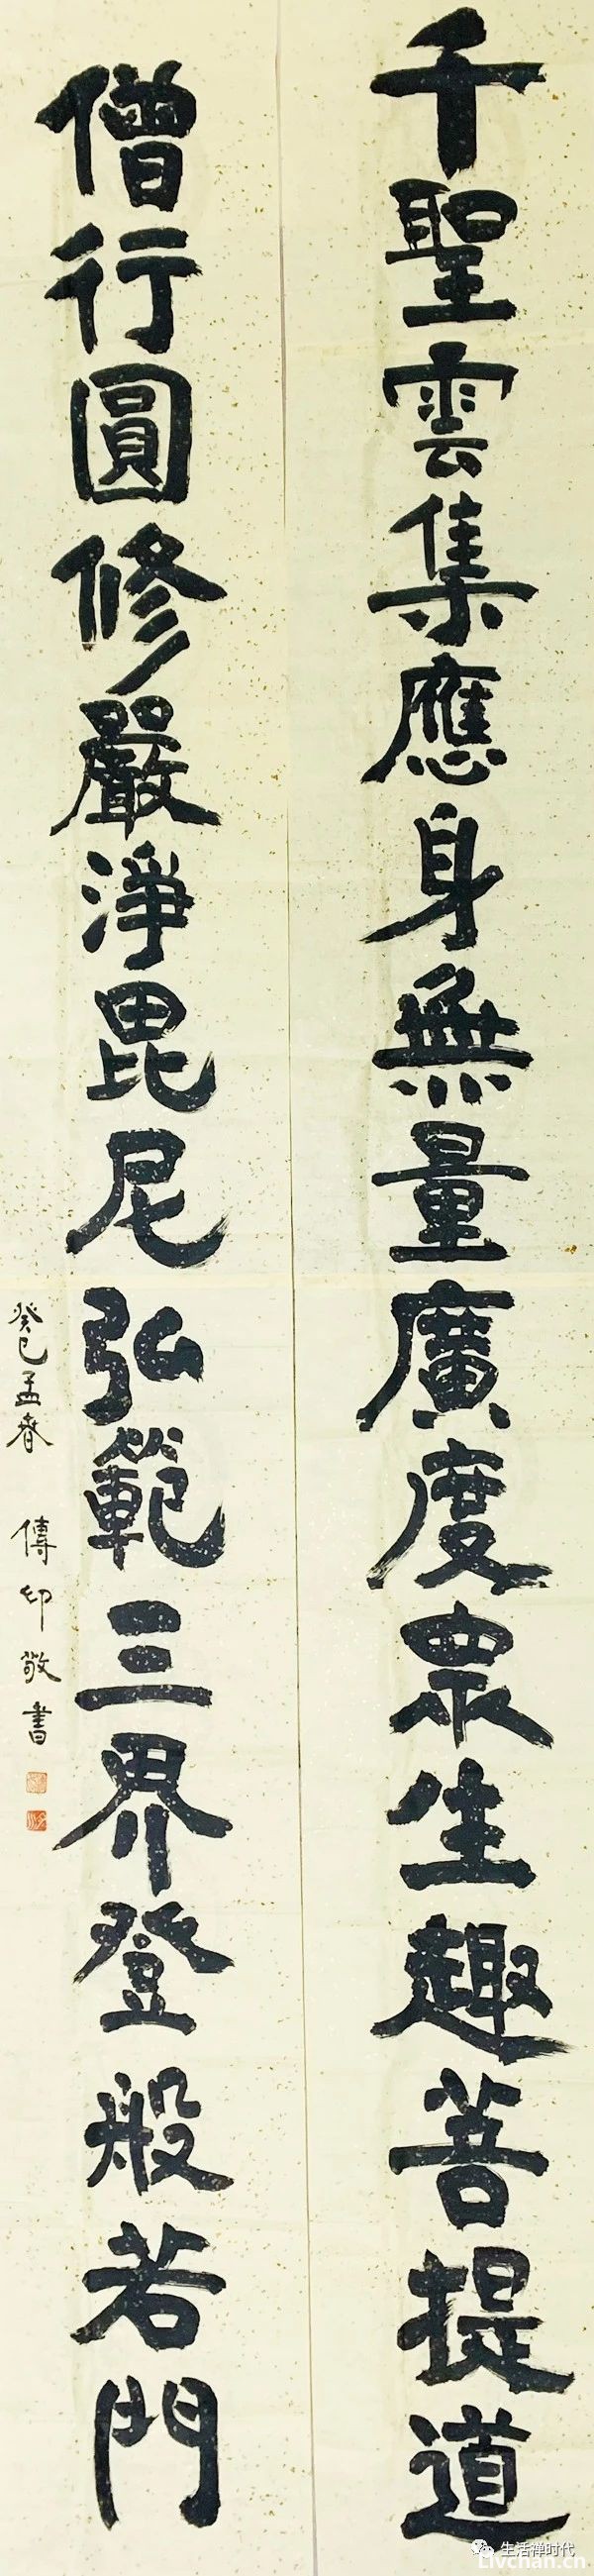 千聖雲集應身無量廣度眾生趣菩提道
僧行圓修嚴淨毘尼弘範三界登般若門
癸巳孟春 傳印敬書
生活禅时代
Livchan.cn